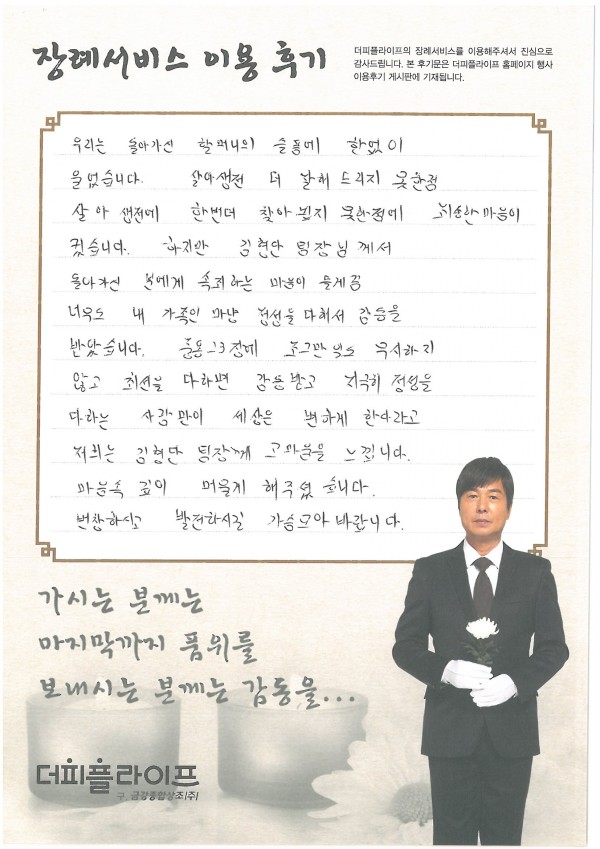 장례서비스 이용 후기
더피플라이프의 장례서비스를 이용해주셔서 진심으로
감사드립니다. 본 후기문은 더피플라이프 홈페이지 행사
이용후기 게시판에 기재됩니다.
우리는 돌아가신 할머니의 슬픔에 한없이
울었습니다. 살아생전 더 잘해 드리지 못한점
살아 생전에 한번더 찾아 뵙지 못한점에 죄손한 마음이
컸습니다. 하지만 김현단 팀장님께서
돌아가신 분에게 속죄하는 마음이 들게끔
너무도 내 가족인 마냥 정성을 다해서 감동을
받았습니다. 중용 23장에 조그만 일도 무시하지
않고 최선을 다하면 감동받고 지극히 정성을
다하는 사람만이 세상은 변하게 한다라고
저희는 김현단 팀장께 고마움을 느낍니다.
마음속 깊이 머물게 해주셨습니다.
번창하시고 발전하시길 가슴모아 바랍니다.
가시는 분께는
마지막까지 품위를
보내시는 분께는 감동을...
더피플라이프
구. 금강종합상조(주)